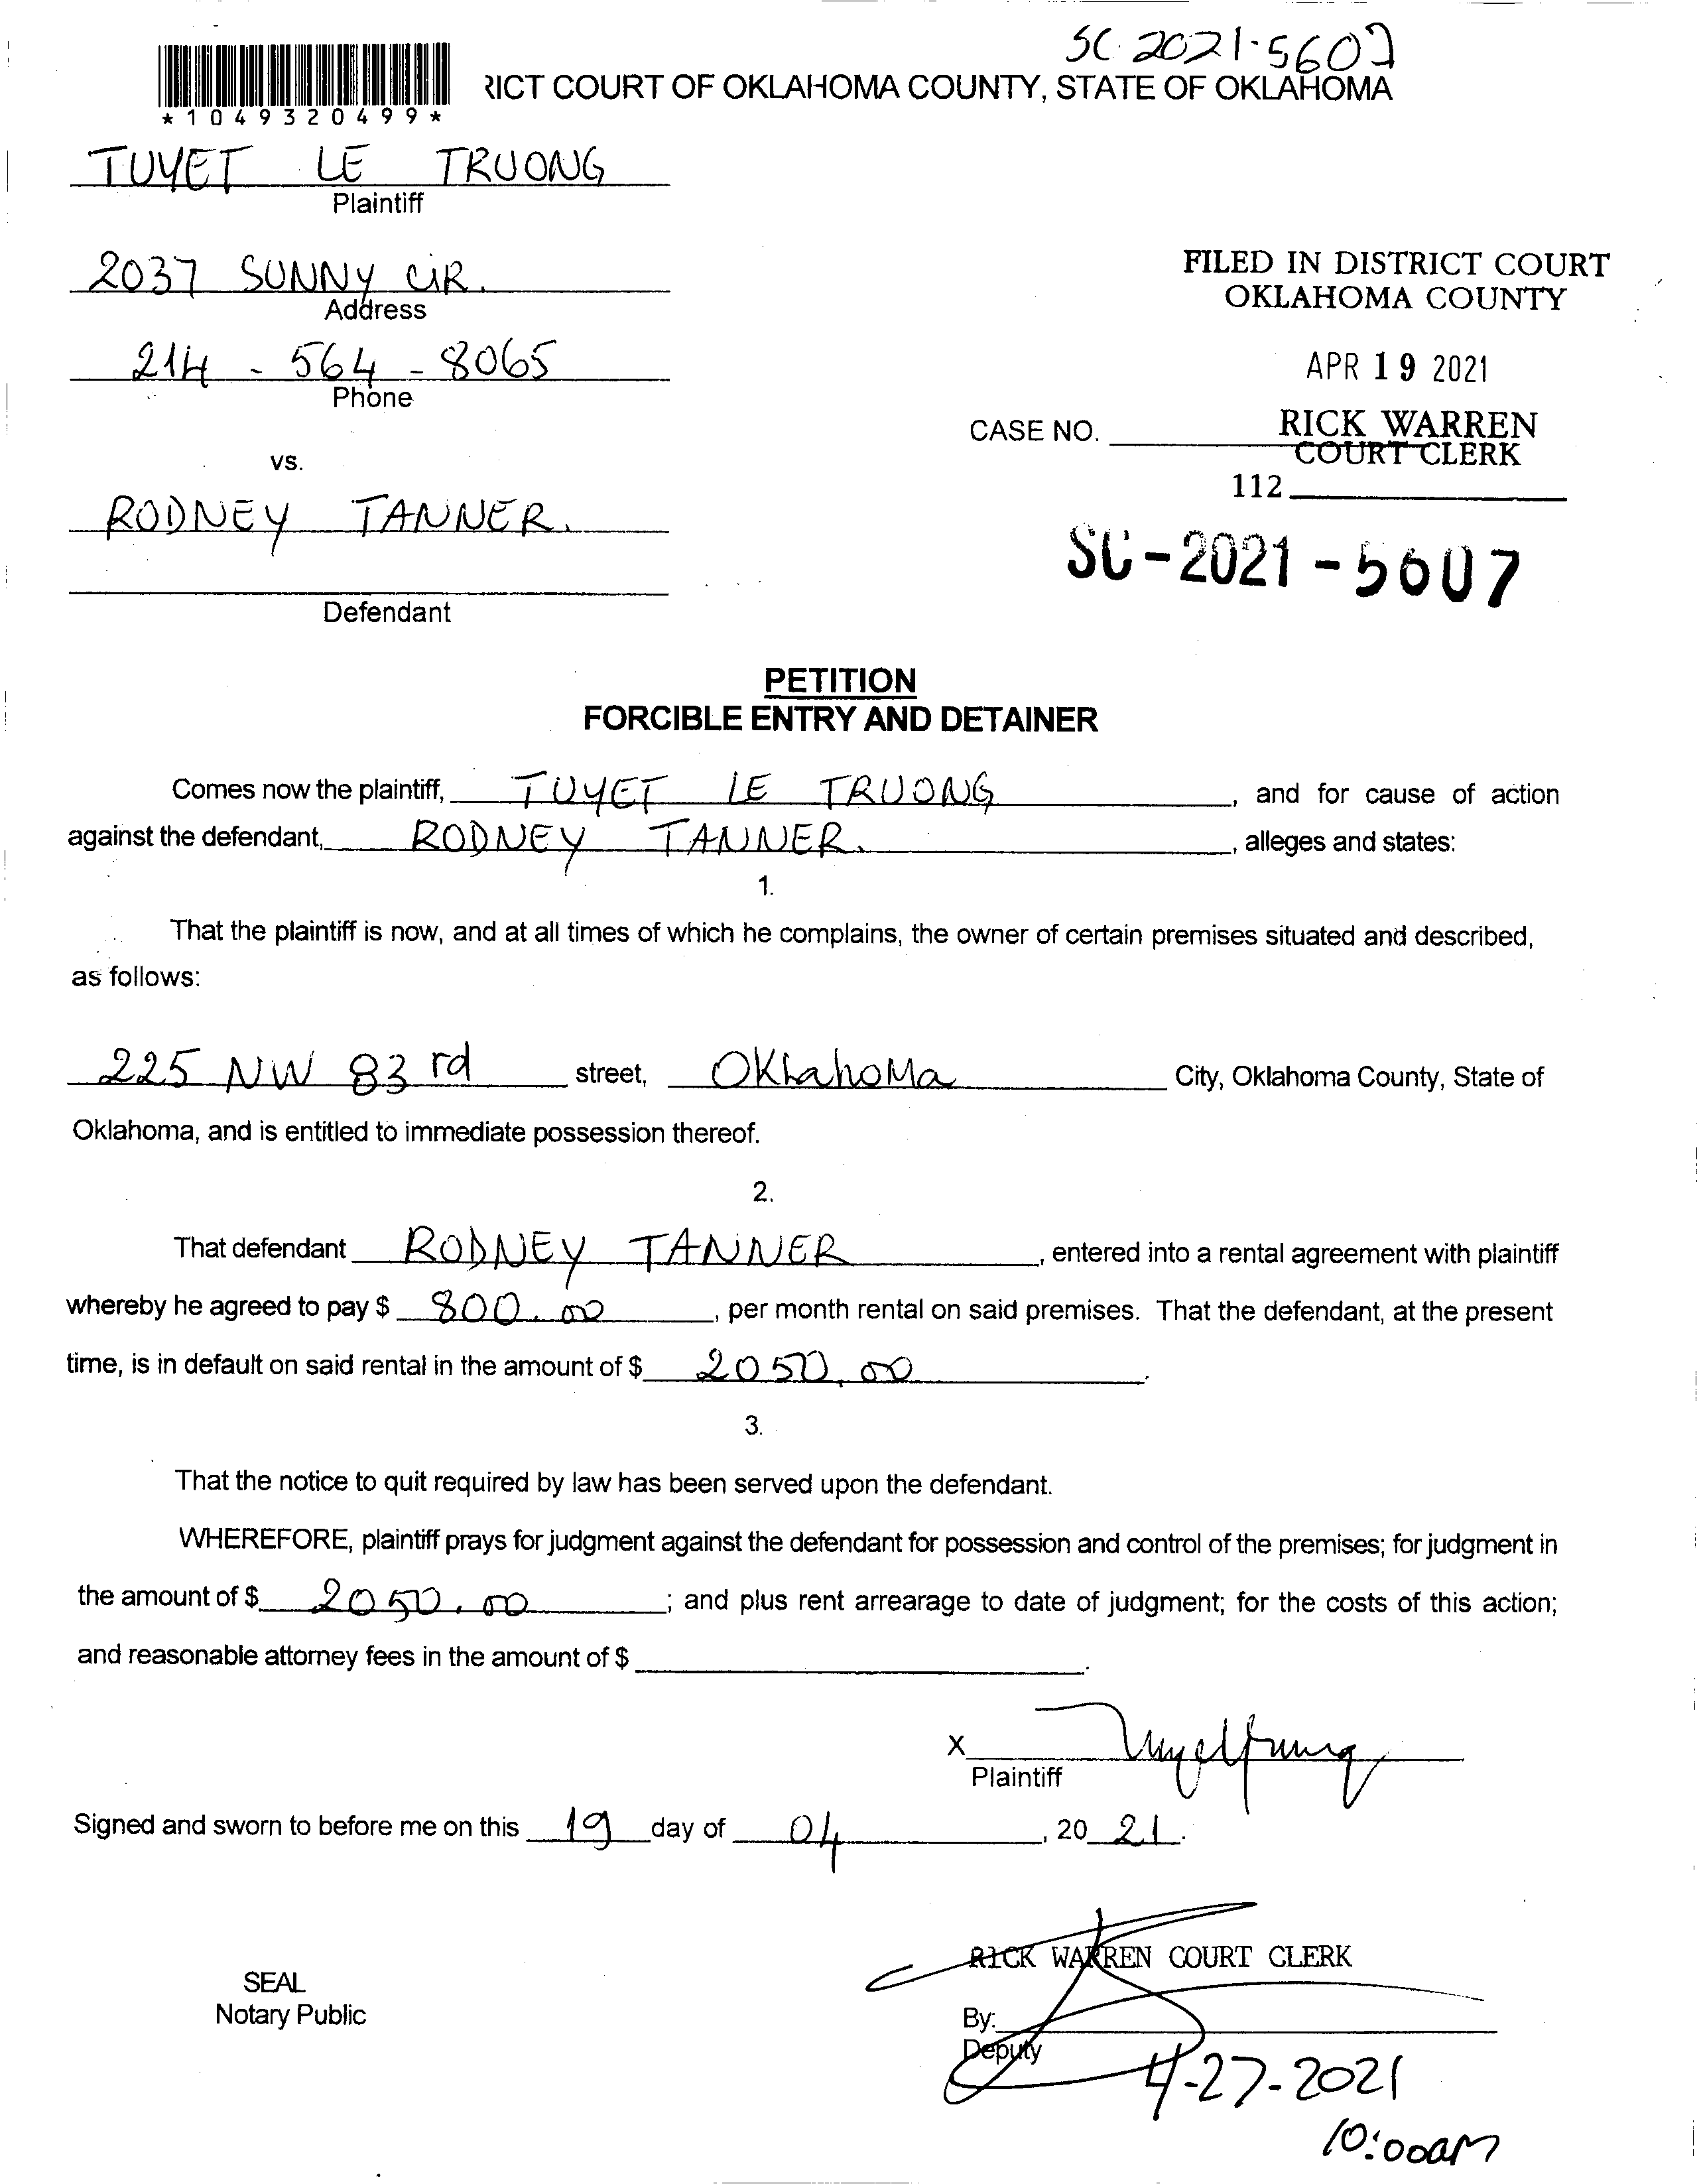 SC-2021-5607
RICT COURT OF OKLAHOMA COUNTY, STATE OF OKLAHOMA
*1049320499*
TUYET LE TRUONG
Plaintiff
2037 SUNNY CIR.
Address
FILED IN DISTRICT COURT
OKLAHOMA COUNTY
214 - 564 - 8065
Phone
APR 19 2021
CASE NO.
RICK WARREN
COURT CLERK
112
vs.
RODNEY TANNER.
SC-2021-5607
Defendant
PETITION
FORCIBLE ENTRY AND DETAINER
Comes now the plaintiff, TUYET LE TRUONG, and for cause of action
against the defendant, RODNEY TANNER., alleges and states:
1.
That the plaintiff is now, and at all times of which he complains, the owner of certain premises situated and described,
as follows:
225 NW 83rd street, OKLahoMa City, Oklahoma County, State of
Oklahoma, and is entitled to immediate possession thereof.
2.
That defendant RODNEY TANNER, entered into a rental agreement with plaintiff
whereby he agreed to pay $ 800.00, per month rental on said premises. That the defendant, at the present
time, is in default on said rental in the amount of $ 2050.00.
3.
That the notice to quit required by law has been served upon the defendant.
WHEREFORE, plaintiff prays for judgment against the defendant for possession and control of the premises; for judgment in
the amount of $ 2050.00; and plus rent arrearage to date of judgment; for the costs of this action;
and reasonable attorney fees in the amount of $ .
X
Plaintiff
Signed and sworn to before me on this 19 day of 04, 20 21.
RICK WARREN COURT CLERK
SEAL
Notary Public
By:
Deputy
4-27-2021
10:00am